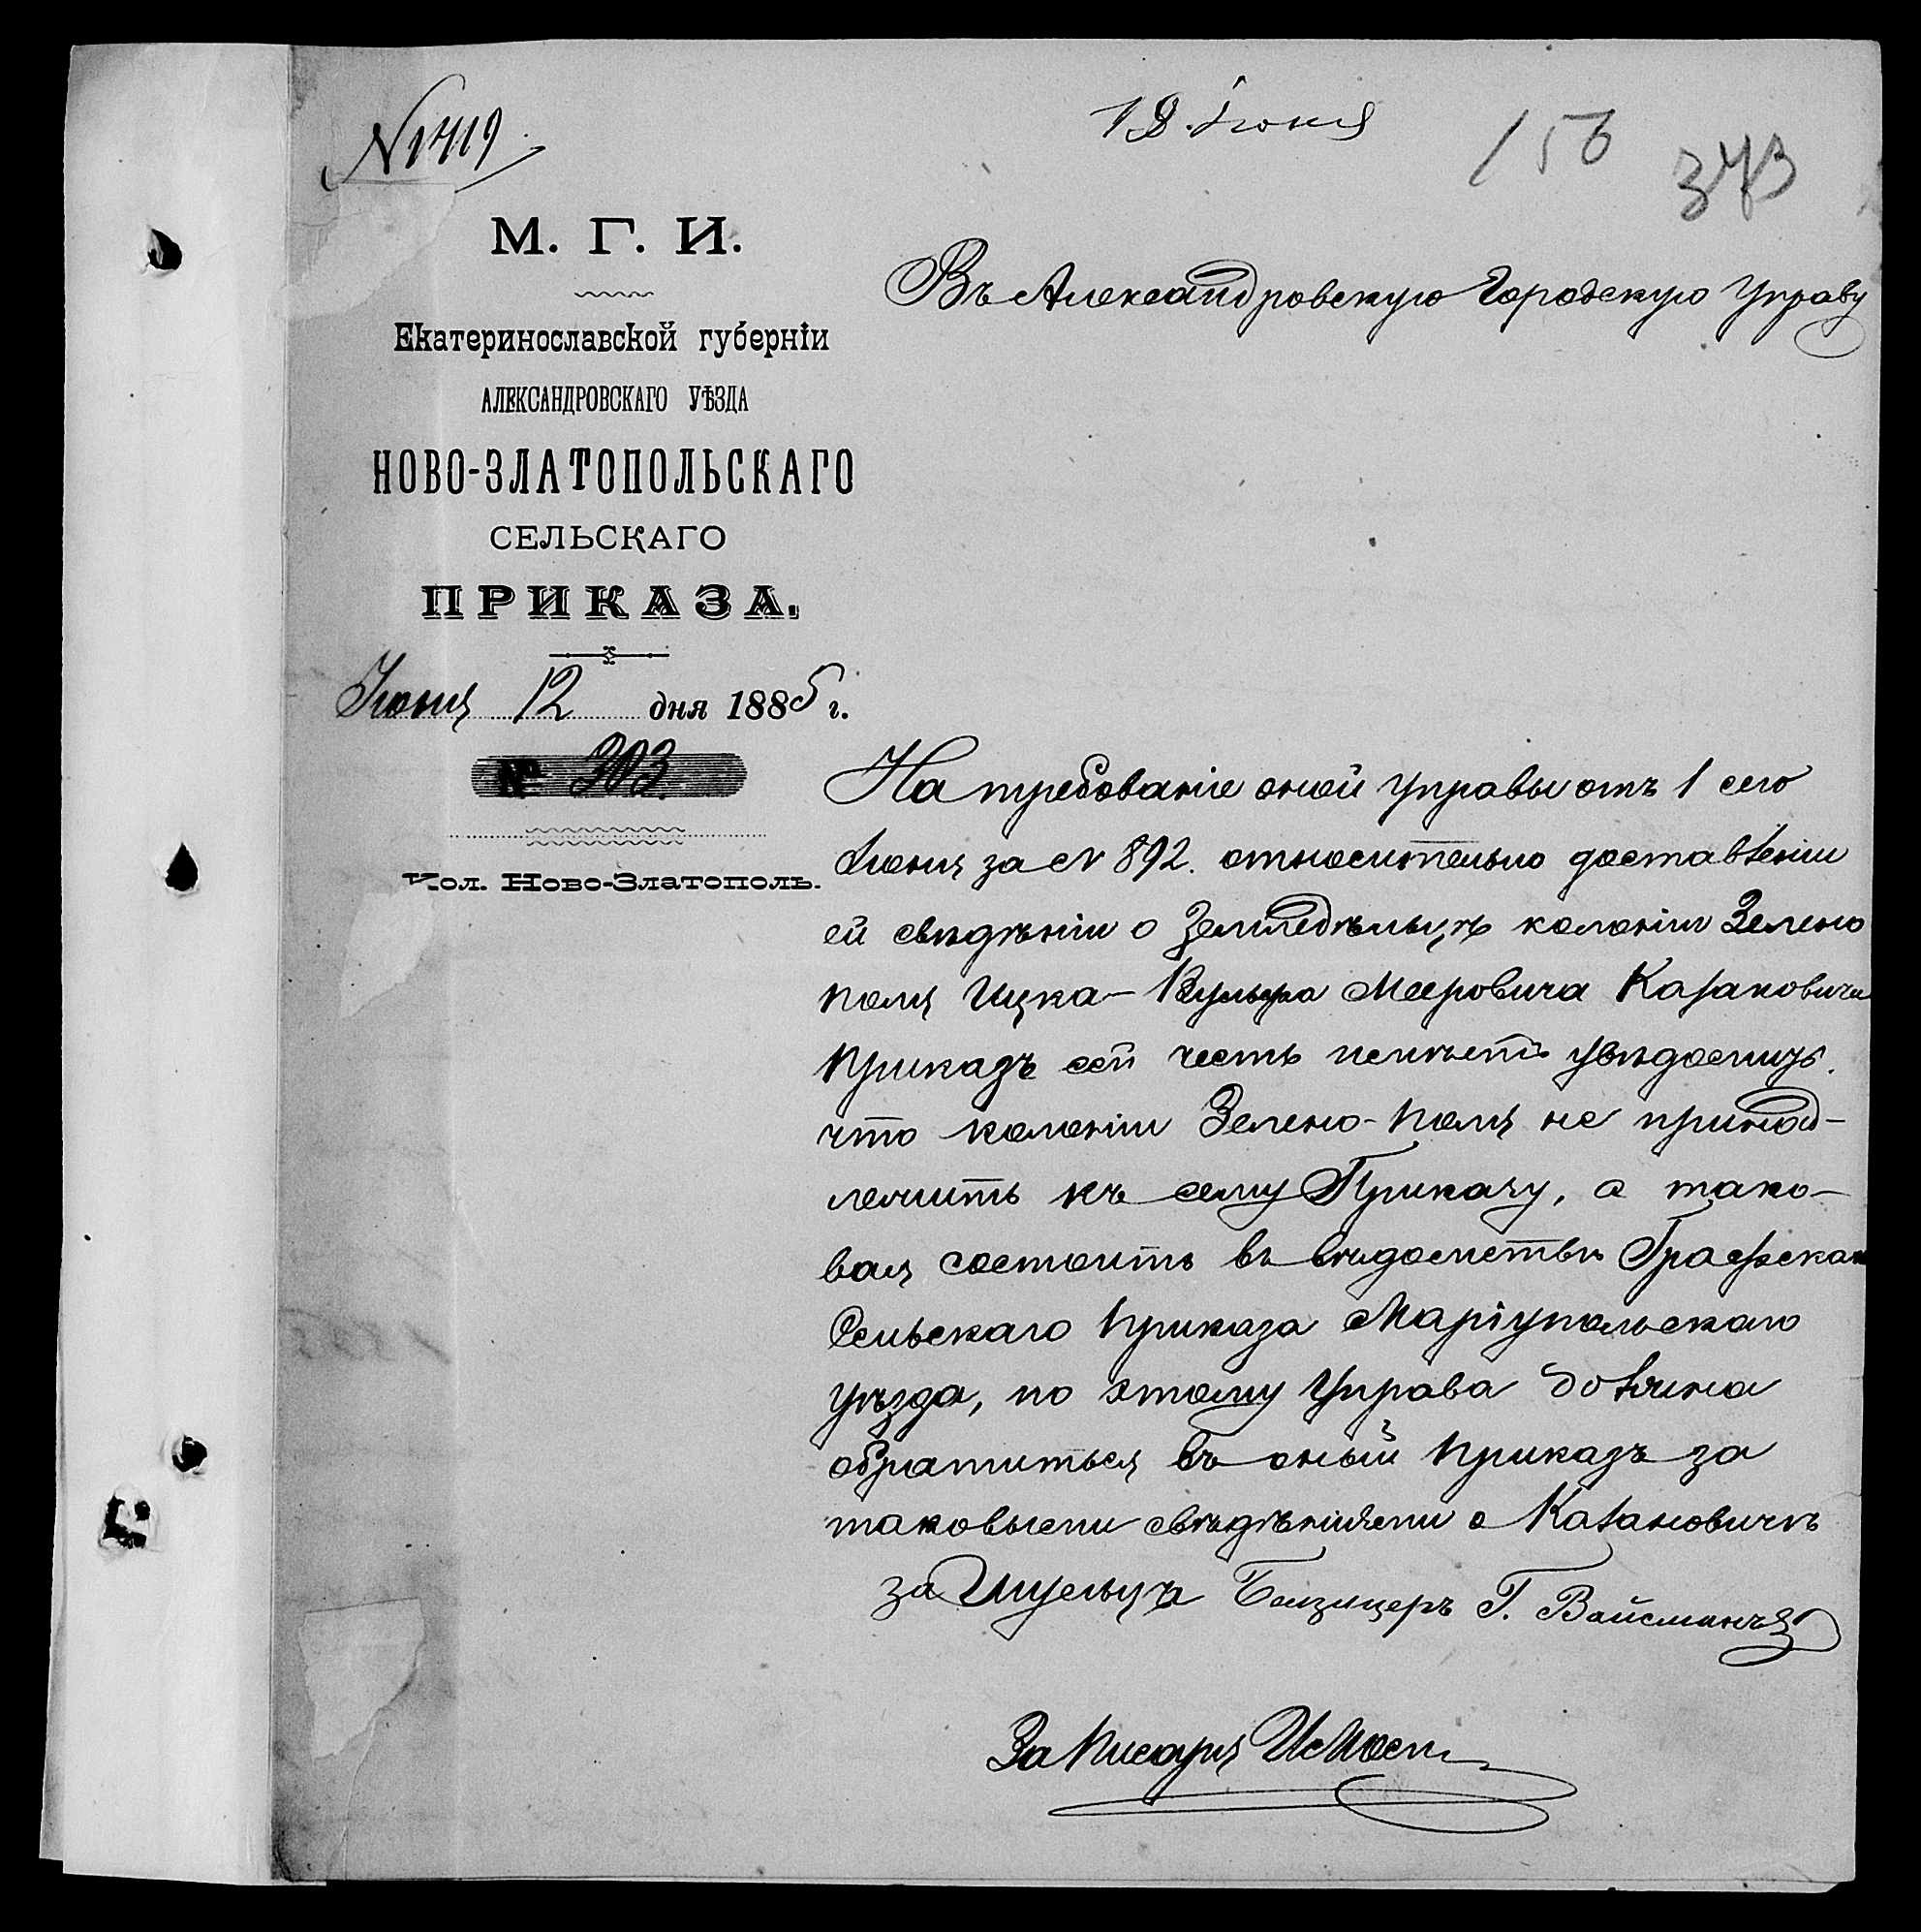 № 1419
18 Іюня
156
373
М. Г. И.
Екатеринославской губерніи
АЛЕКСАНДРОВСКАГО УѢЗДА
НОВО-ЗЛАТОПОЛЬСКАГО
СЕЛЬСКАГО
ПРИКАЗА.
Іюня 12 дня 1885 г.
№ 303.
Кол. Ново-Златополь.
Въ Александровскую Городскую Управу
На требованіе оной Управы отъ 1 сего
Іюня за № 892. относительно доставленіи
ей свѣдѣніи о Земледѣльцѣ колоніи Зелено
поля Ицка-Вульфа Мееровича Казановича
Приказъ сей честь имѣетъ увѣдомить.
что колоніи Зелено-Поля не принад-
лежитъ къ сему Приказу, а тако-
вая состоитъ въ вѣдомствѣ Графскаго
Сельскаго Приказа Маріупольскаго
уѣзда, по этому Управа должна
обратиться въ оный Приказъ за
таковыми свѣдѣніями о Казановичѣ
за Шульца Г. Вайсманъ
За Писаря